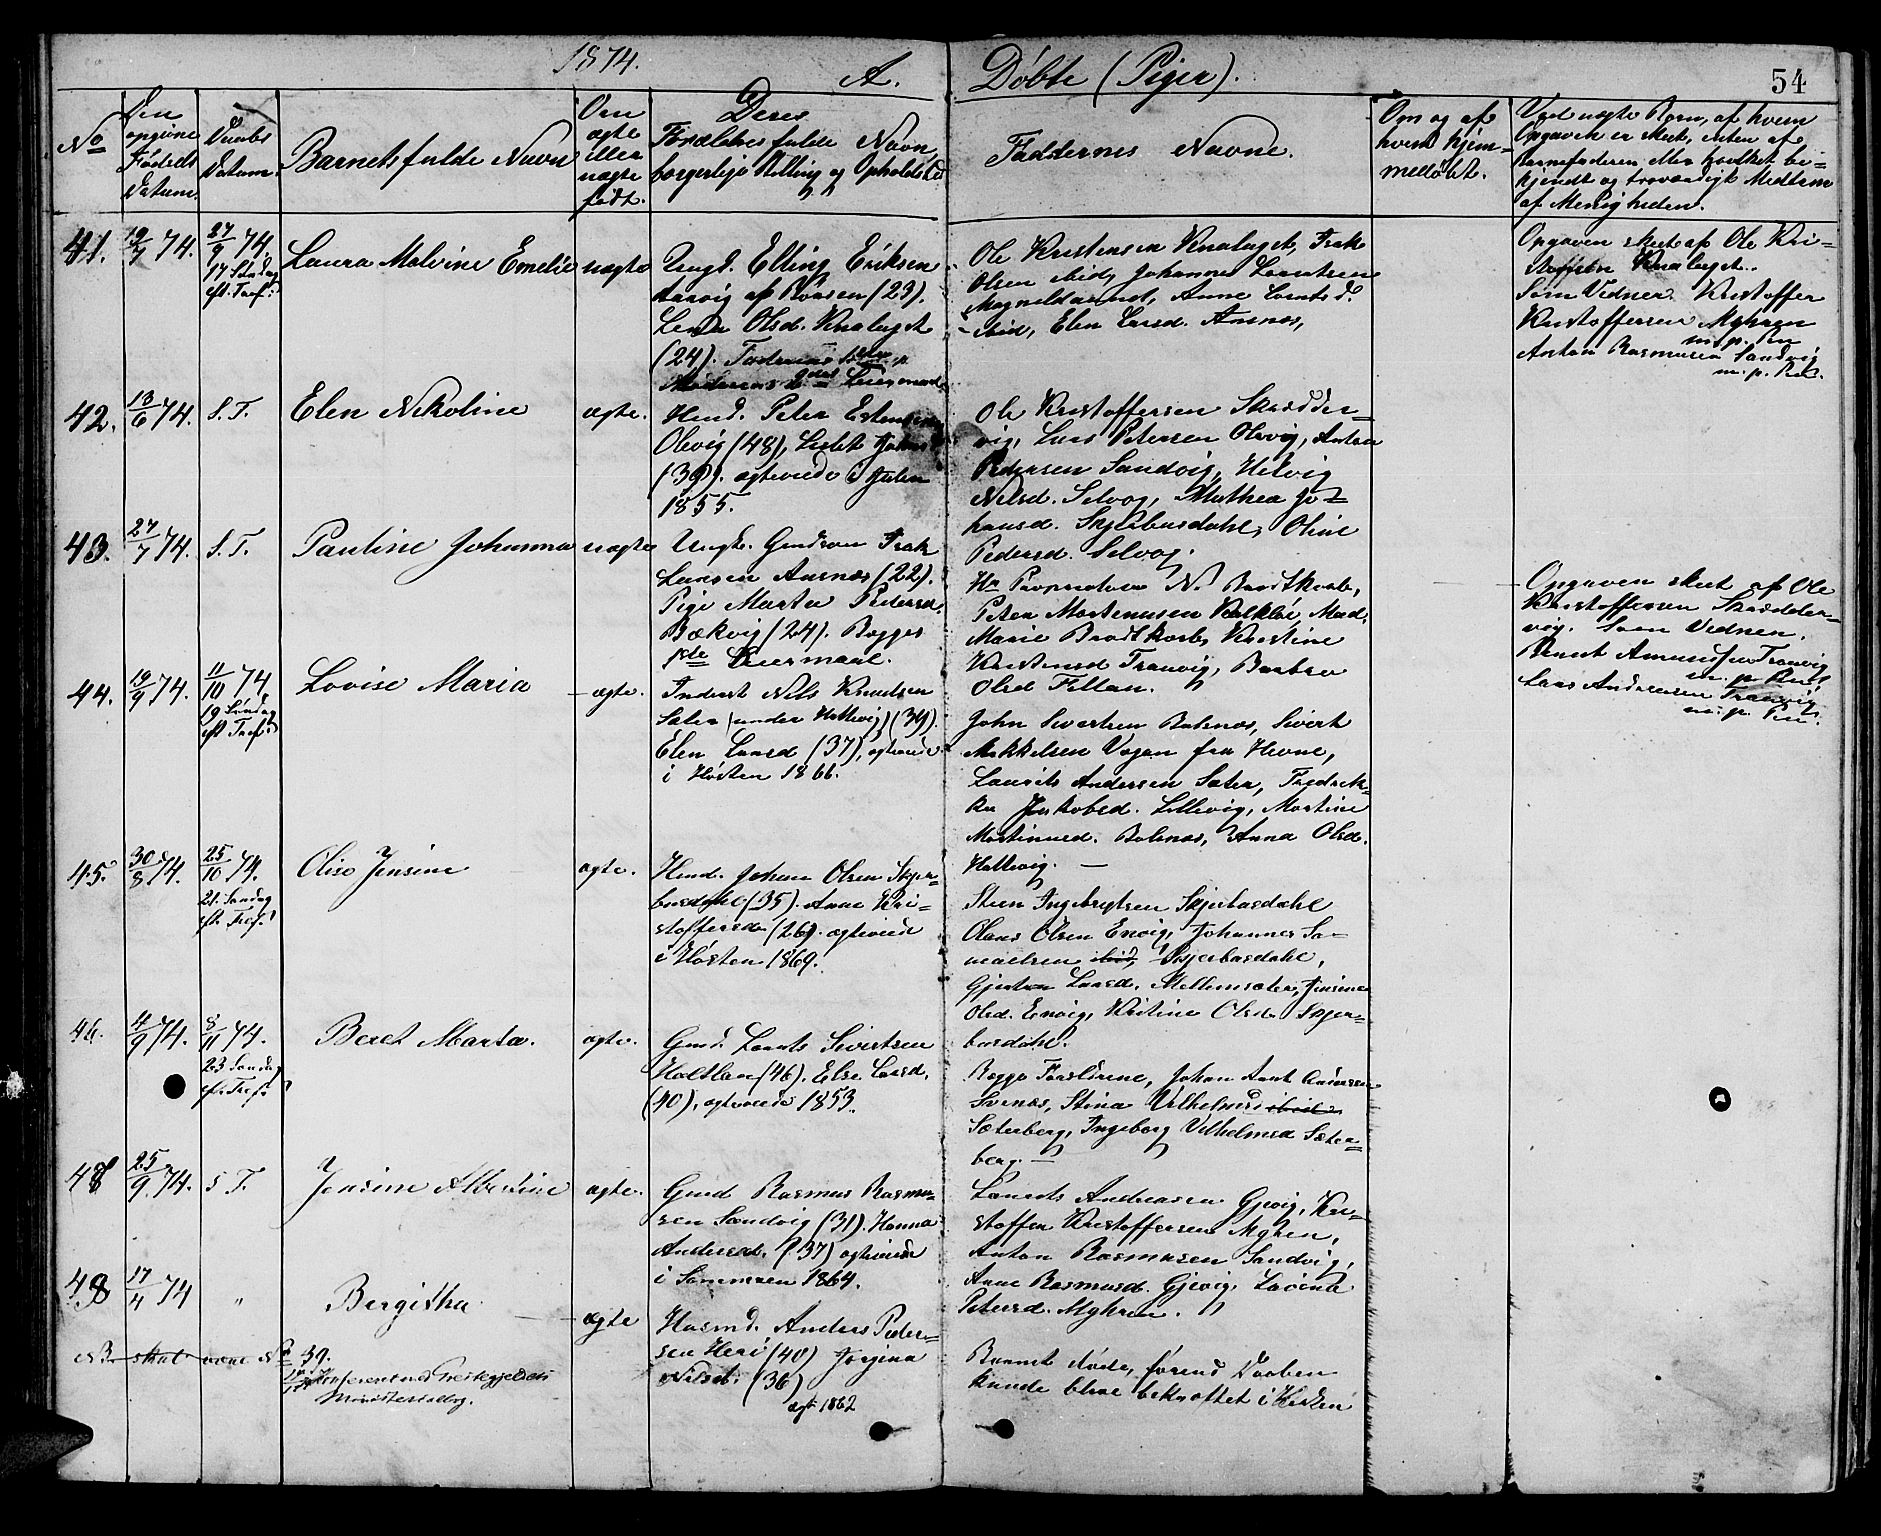 1874.
A.
Døbte (Piger).
54
No
Den opgivne Fødsels Datum.
Daabs Datum.
Barnets fulde Navn
Om ægte eller uægte født.
Deres Forældres fulde Navn, borgerlige Stilling og Opholdssted
Faddernes Navne.
Om og af hvem hjemmedøbt.
Ved uægte Børn, af hvem
Opgaven er skeet, enten af
Barnefaderen eller hvilket be-
kjendt og troværdigt Medlem
af Menigheden.
41.
19/7 74.
27/9 74.
17 Søndag
eft. Tref:
Laura Malvine Emelie
uægte
Ungk. Elling Eriksen
af (23).
Olsd. Knalaget
(24). Faderens 1ste
Moderens 2det Leiermaal
Ole Kristensen Knalaget,
Olsen ibid, Johannes Lauritsen
Anne
ibid, Elen Larsd. Ansnæs,
Opgaven skeet af Ole Kri-
Knalaget.
Som Vidner. Kristoffer
Kristoffersen Myhren
m. p. Pen
Anton Rasmusen Sandvig
m. p. Pen.
42.
13/6 74.
S. T.
Elen Nikoline
ægte.
Huusd. Peter
(48),
(39). ægteviede i Julen
1855.
Ole Kristoffersen Skrædder-
vig, Lars Petersen
Pedersen Sandvig, Helvig
Nilsd. Selvog, Mathea Jo-
hansd. Skjerbusdahl, Oline
Pedersd. Selvog.
43.
27/7 74.
S. T.
Pauline Johanna
uægte
Ungk. Gaardsøn
Larsen Ansnæs (22).
Pige Marta Pedersd.
Bækvig (24). Begges
1ste Leiermaal.
Hr Proprietær N. Brodtkorb,
Peter Mortenusen Kalkløe, Mad.
Marie Brodtkorb, Kristine
Kristensd Tranvig, Barbro
Olsd Fillan.
Opgaven skeet af Ole
Kristoffersen Skrædder-
vig. Som Vidner.
Bernt Amundsen Tranvig
m. p. Pen
Lars Andersen Tranvig
m. p. Pen.
44.
19/9 74.
11/10 74
19 Søndag
eft Tref:
Lovise Maria
ægte.
Inderst Nils Knudsen
Sæter (under Hallevig) (39).
Elen Larsd (37), ægteviede
i Høsten 1866.
John Sivertsen Balsnæs, Sivert
Mikkelsen Vagen fra Hevne,
Laurits Andersen Sæter, Fredrik-
ka Jakobsd. Lillevig, Martine
Martinusd. Balsnæs, Anna Olsd.
Hallevig.
45.
30/8 74.
25/10 74.
21. Søndag
eft. Tref:
Olise Jensine
ægte.
Huusd. Johan Olsen Skjer-
busdahl (35). Anne Kri-
stoffersd. (26). ægteviede
i Høsten 1869.
Steen Ingebrigtsen Skjerbusdahl
Olaus Olsen Envig, Johannes Sa-
muelsen ibid, Skjerbusdahl,
Larsd. Mellemsæter, Jensine
Olsd. Envig, Kristine Olsd. Skjer-
busdahl.
46.
4/9 74.
8/11 74.
23 Søndag
eft. Tref:
Beret Marta.
ægte.
Gmd. Laurits Sivertsen
Holtlien (46). Else Larsd.
(40), ægteviede 1853.
Begge Forældrene, Johan Arnt Andersen
Svenæs, Stina Vilhelmsd ibid
Sæterberg, Ingeborg Vilhelmsd Sæter-
berg.
47
25/9 74.
S T.
Jensine Albertine
ægte.
Gmd Rasmus Rasmu-
sen Sandvig (31). Hanna
Andersd. (37) ægteviede
i Sommeren 1864.
Laurits Andreasen Gjevig, Kri-
stoffer Kristoffersen Myhren,
Anton Rasmusen Sandvig,
Anne Rasmusd. Gjevig, Lovina
Petersd. Myhren.
48
17/4 74
"
Bergitha
ægte
Husmd. Anders Peder-
sen (40) Jørgina
Nilsd. (36)
ægt 1862
Barnet døde, førend Daaben
kunde blive bekræftet i Kirken
NB. skal være No 39.
Konfereret med Præstegjeldets
Ministerialbog.